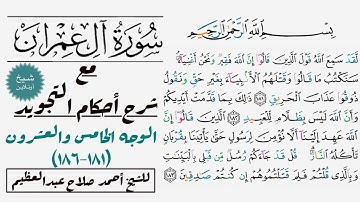 بِسْمِ اللَّهِ الرَّحْمَٰنِ الرَّحِيمِ
لَّقَدْ سَمِعَ اللَّهُ قَوْلَ الَّذِينَ قَالُوا إِنَّ اللَّهَ فَقِيرٌ وَنَحْنُ أَغْنِيَاءُ
سَنَكْتُبُ مَا قَالُوا وَقَتْلَهُمُ الْأَنبِيَاءَ بِغَيْرِ حَقٍّ وَنَقُولُ
ذُوقُوا عَذَابَ الْحَرِيقِ ١٨١ ذَٰلِكَ بِمَا قَدَّمَتْ أَيْدِيكُمْ
وَأَنَّ اللَّهَ لَيْسَ بِظَلَّامٍ لِّلْعَبِيدِ ١٨٢ الَّذِينَ قَالُوا إِنَّ اللَّهَ
عَهِدَ إِلَيْنَا أَلَّا نُؤْمِنَ لِرَسُولٍ حَتَّىٰ يَأْتِيَنَا بِقُرْبَانٍ
تَأْكُلُهُ النَّارُ قُلْ قَدْ جَاءَكُمْ رُسُلٌ مِّن قَبْلِي بِالْبَيِّنَاتِ
وَبِالَّذِي قُلْتُمْ فَلِمَ قَتَلْتُمُوهُمْ إِن كُنتُمْ صَادِقِينَ ١٨٣
سُورَةُ آلِ عِمْرَان
مع
شيخ
أونلاين
شرح أحكام التجويد
الوجه الخامس والعشرون
(١٨١-١٨٦)
للشيخ أحمد صلاح عبدالعظيم